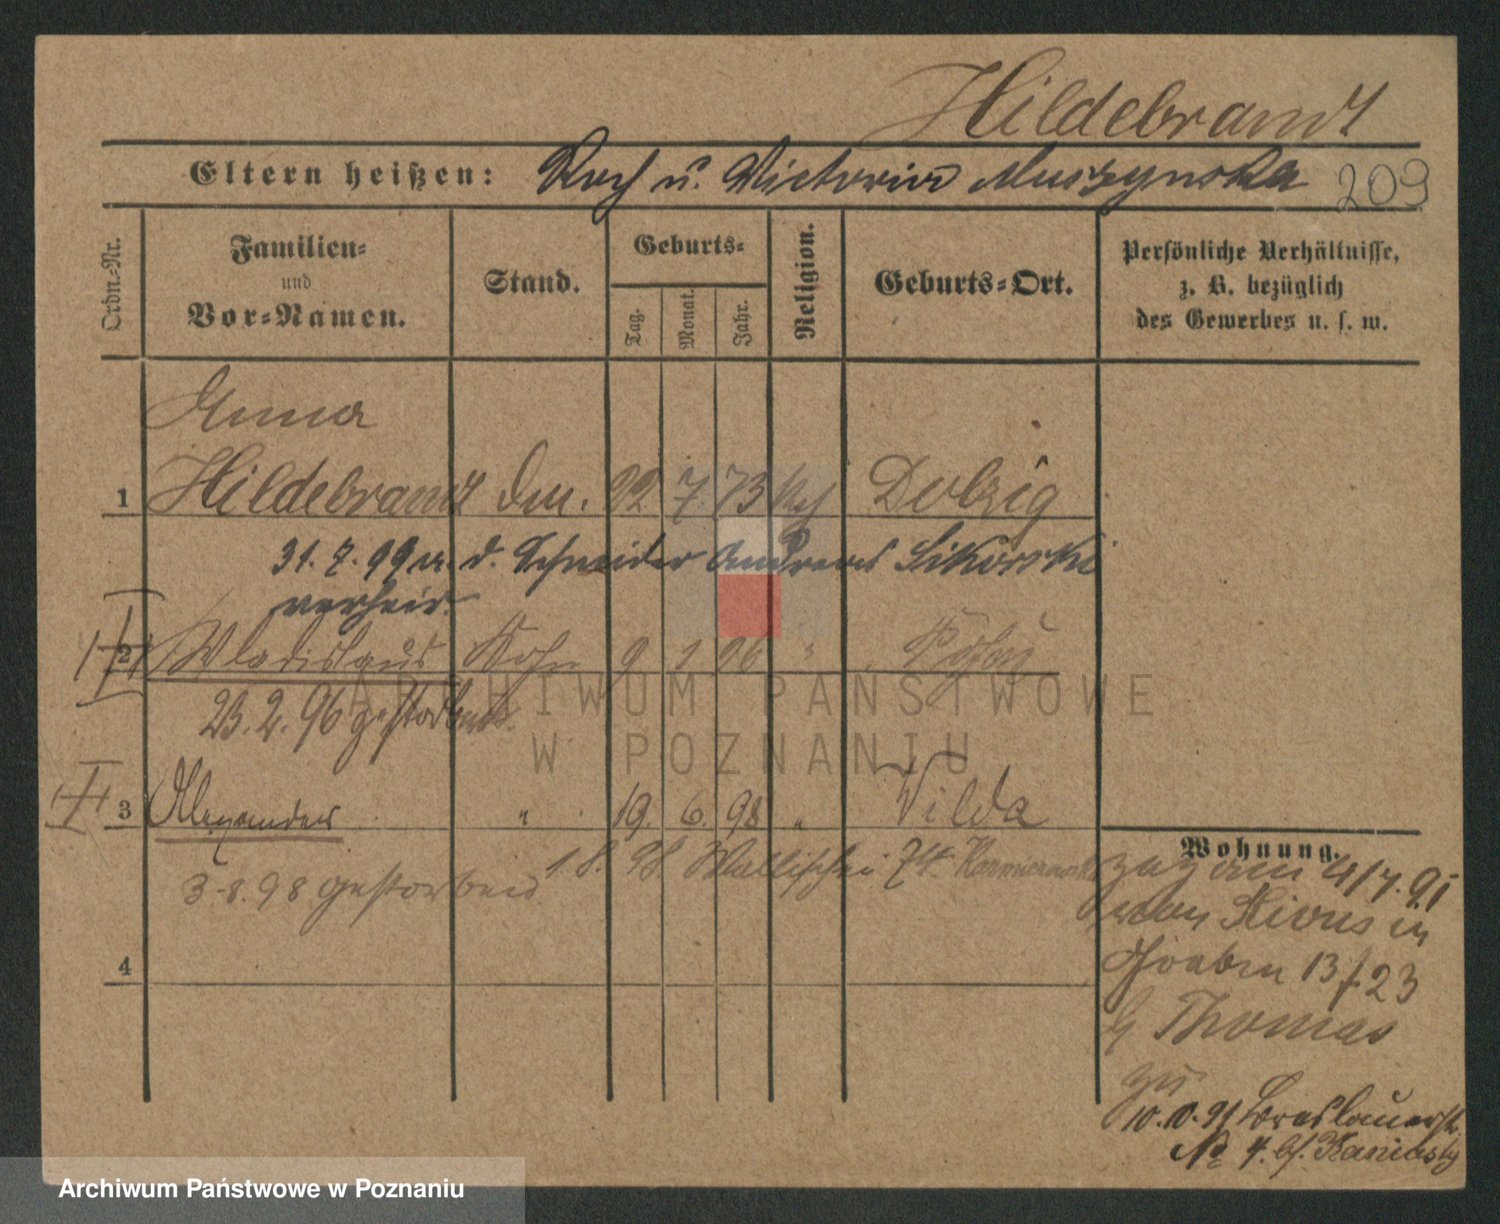 Hildebrandt
Eltern heißen: Roch u. Victoria Muszynska 209
Ordn.-Nr.
Familien-
und
Vor-Namen.
Stand.
Geburts-
Tag.
Monat.
Jahr.
Religion.
Geburts-Ort.
Persönliche Verhältnisse,
z. B. bezüglich
des Gewerbes u. s. w.
Anna
1 Hildebrandt 22. 7. 73 Dolzig
31. 7. 99 m. d. Schneider Andreas Sikorski
verheir.
2 Wladislaus Sohn 9 1 96 " Posen
23. 2. 96 gestorben.
3 Alexander " 19. 6. 98 " Wilda
1.8. 98. Wallischei 74.
3.8.98 gestorben
4
Wohnung.
zug am 4/7. 91
von in
Graben 13 f. 23
b Thomas
zu
10.10.91 Breslauerstr.
No 4. bei
ARCHIWUM PAŃSTWOWE
W POZNANIU
Archiwum Państwowe w Poznaniu